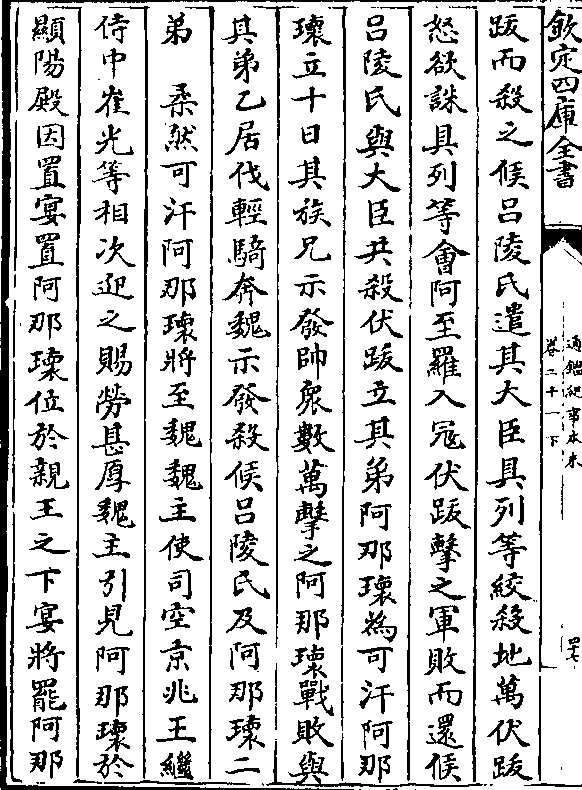 欽定四庫全書
通鑑紀事本末
卷二十一下
四七
跋而殺之候呂陵氏遣其大臣具列等絞殺地萬伏跋
怒欲誅具列等會阿至羅入寇伏跋擊之軍敗而還候
呂陵氏與大臣共殺伏跋立其弟阿那瓌為可汗阿那
瓌立十日其族兄示發帥衆數萬擊之阿那瓌戰敗與
其弟乙居伐輕騎奔魏示發殺候呂陵氏及阿那瓌二
弟 柔然可汗阿那瓌將至魏魏主使司空京兆王繼
侍中崔光等相次迎之賜勞甚厚魏主引見阿那瓌於
顯陽殿因置宴置阿那瓌位於親王之下宴將罷阿那